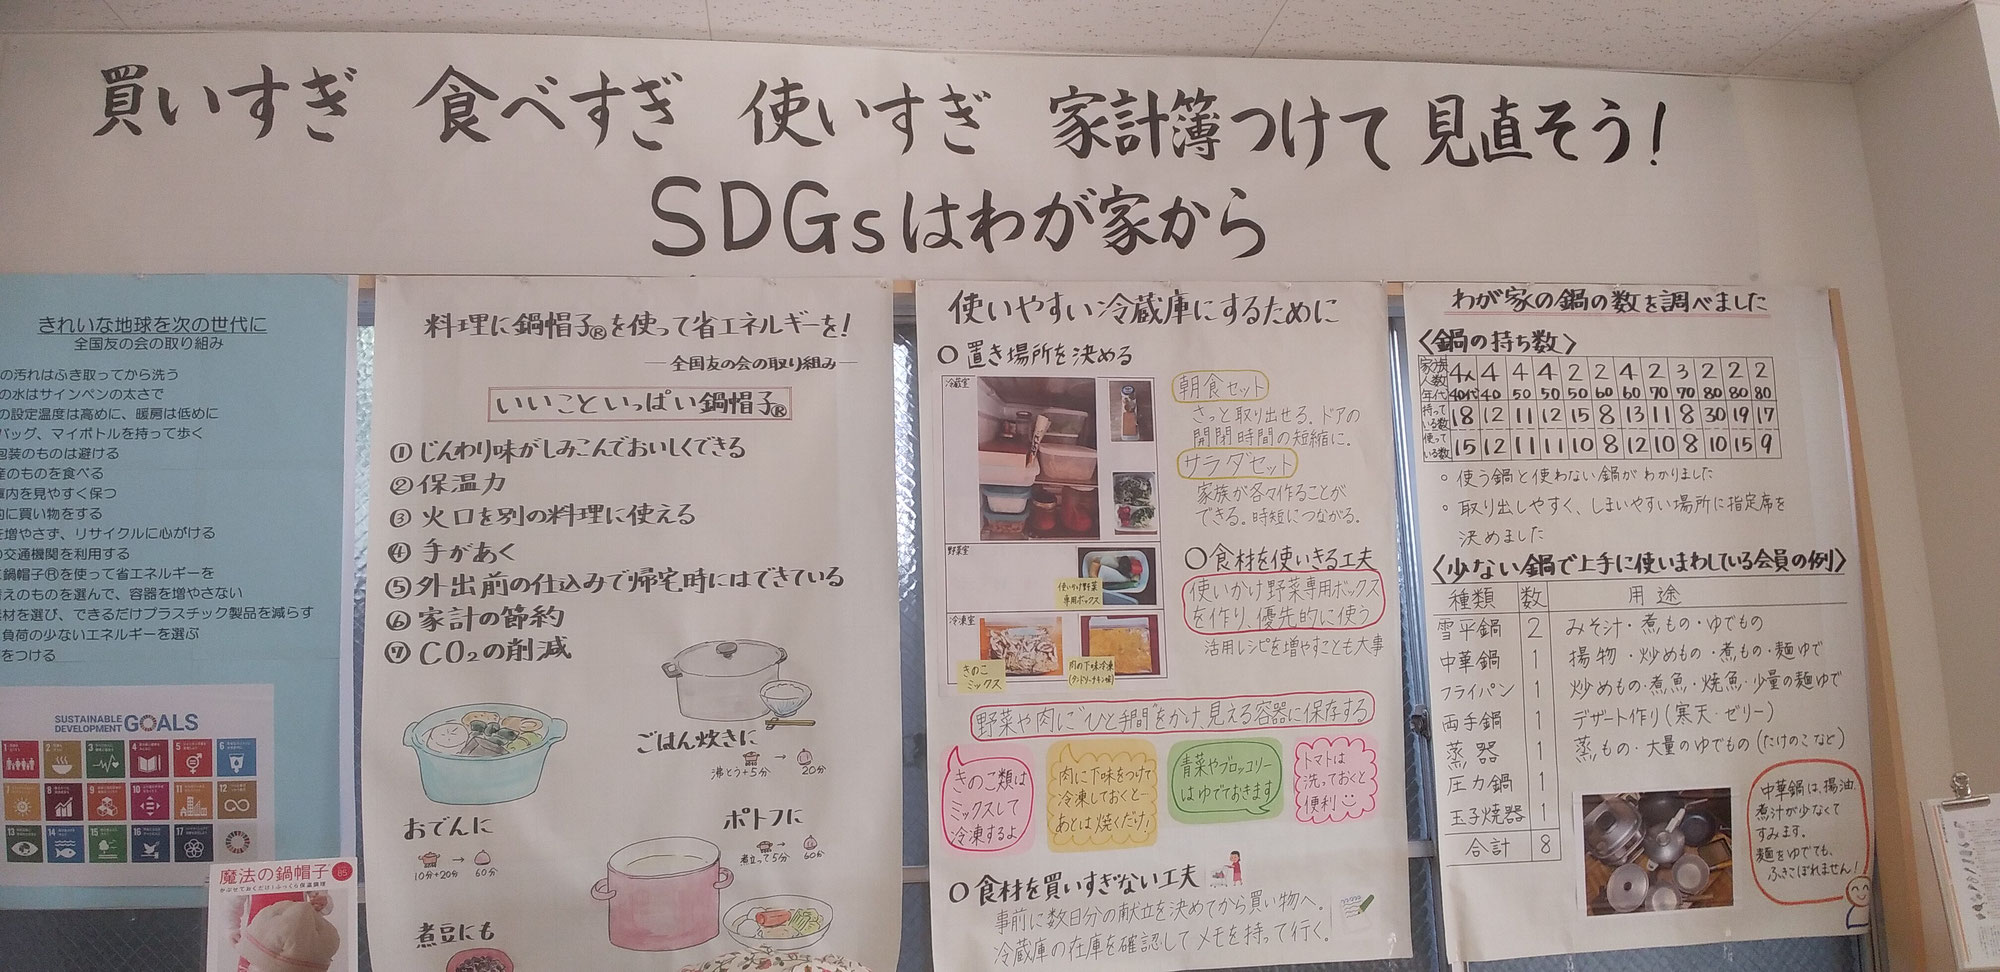 買いすぎ 食べすぎ 使いすぎ 家計簿つけて 見直そう!
SDGsはわが家から
きれいな地球を次の世代に
全国友の会の取り組み
の汚れはふき取ってから洗う
の水はサインペンの太さで
の設定温度は高めに、暖房は低めに
バッグ、マイボトルを持って歩く
包装のものは避ける
産のものを食べる
庫内を見やすく保つ
的に買い物をする
を増やさず、リサイクルに心がける
の交通機関を利用する
に鍋帽子®を使って省エネルギーを
替えのものを選んで、容器を増やさない
素材を選び、できるだけプラスチック製品を減らす
負荷の少ないエネルギーを選ぶ
をつける
SUSTAINABLE DEVELOPMENT GOALS
1 2 3 4 5 6
7 8 9 10 11 12
13 14 15 16 17
魔法の鍋帽子 85
かぶせておくだけ!ふっくら保温調理
料理に鍋帽子®を使って省エネルギーを!
—全国友の会の取り組み—
いいこといっぱい鍋帽子®
①じんわり味がしみこんでおいしくできる
②保温力
③火口を別の料理に使える
④手があく
⑤外出前の仕込みで帰宅時にはできている
⑥家計の節約
⑦CO₂の削減
ごはん炊きに
沸とう+5分 → 20分
おでんに
10分+20分 → 60分
ポトフに
煮立って5分 → 60分
煮豆にも
使いやすい冷蔵庫にするために
○置き場所を決める
冷蔵室
朝食セット
さっと取り出せる。ドアの
開閉時間の短縮に。
サラダセット
家族が各々作ることが
できる。時短につながる。
野菜室
使いかけ野菜
専用ボックス
冷凍室
きのこ
ミックス
肉の下味冷凍
(タンドリーチキン味)
○食材を使いきる工夫
使いかけ野菜専用ボックス
を作り、優先的に使う
活用レシピを増やすことも大事
野菜や肉に"ひと手間"をかけ、見える容器に保存する
きのこ類は
ミックスして
冷凍するよ
肉に下味をつけて
冷凍しておくと—
あとは焼くだけ!
青菜やブロッコリー
はゆでておきます
トマトは
洗っておくと
便利
○食材を買いすぎない工夫
事前に数日分の献立を決めてから買い物へ。
冷蔵庫の在庫を確認してメモを持って行く。
わが家の鍋の数を調べました
〈鍋の持ち数〉
家族人数 4人 4 4 4 2 2 4 2 3 2 2 2
年代 40代 40 50 50 50 60 60 70 70 80 80 80
持っている数 18 12 11 12 15 8 13 11 8 30 19 17
使っている数 15 12 11 11 10 8 12 10 8 10 15 9
○ 使う鍋と使わない鍋がわかりました
○ 取り出しやすく、しまいやすい場所に指定席を
決めました
〈少ない鍋で上手に使いまわしている会員の例〉
種類 数 用途
雪平鍋 2 みそ汁・煮もの・ゆでもの
中華鍋 1 揚物・炒めもの・煮もの・麺ゆで
フライパン 1 炒めもの・煮魚・焼魚・少量の麺ゆで
両手鍋 1 デザート作り(寒天・ゼリー)
蒸器 1 蒸もの・大量のゆでもの(たけのこなど)
圧力鍋 1
玉子焼器 1
合計 8
中華鍋は、揚油、
煮汁が少なくて
すみます。
麺をゆでても、
ふきこぼれません!